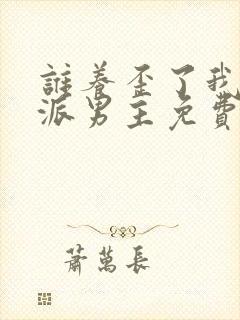 誰養歪了我
派男主免費
蕭萬長